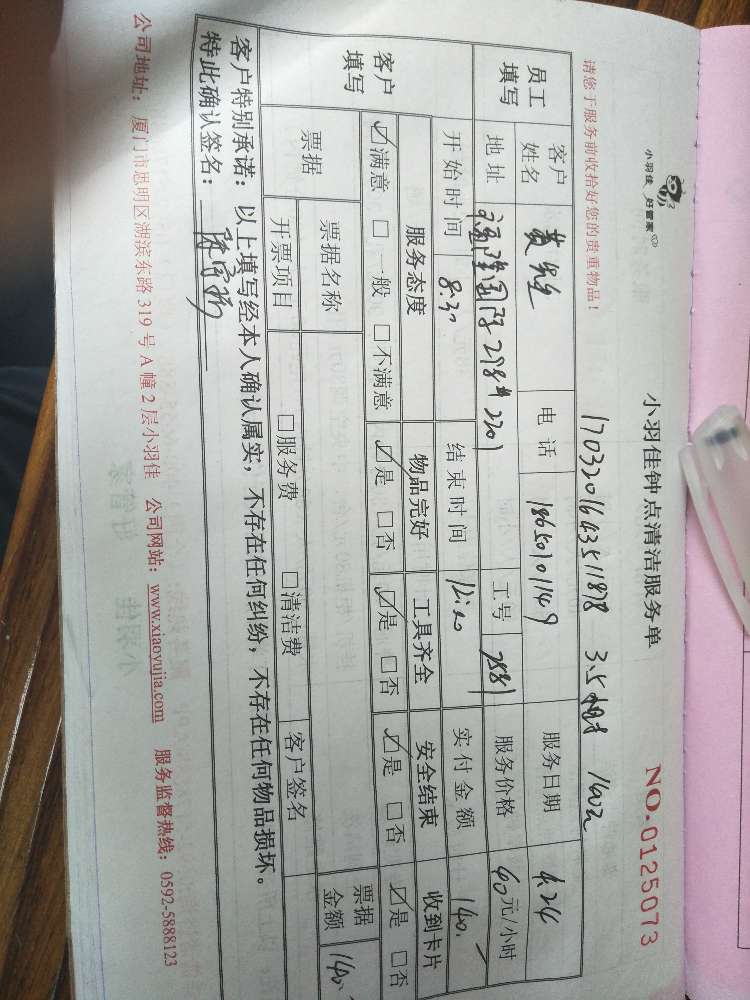 小羽佳 好管家
小羽佳钟点清洁服务单 NO.0125073
请您于服务前收拾好您的贵重物品！
3.5 140元
员工填写 客户姓名 黄先生 电话 18650101149 服务日期 4.24
地址 298# 2201 工号 服务价格 40元/小时
开始时间 8:30 结束时间 12:00 实付金额 140.
客户填写 服务态度 物品完好 工具齐全 安全结束 收到卡片
☑满意 □一般 □不满意 ☑是 □否 ☑是 □否 ☑是 □否 ☑是 □否
票据 票据名称 票据金额 140.
开票项目 □服务费 □清洁费 客户签名
客户特别承诺：以上填写经本人确认属实，不存在任何纠纷，不存在任何物品损坏。
特此确认签名：
公司地址：厦门市思明区湖滨东路319号A幢2层小羽佳 公司网站：www.xiaoyujia.com 服务监督热线：0592-5888123